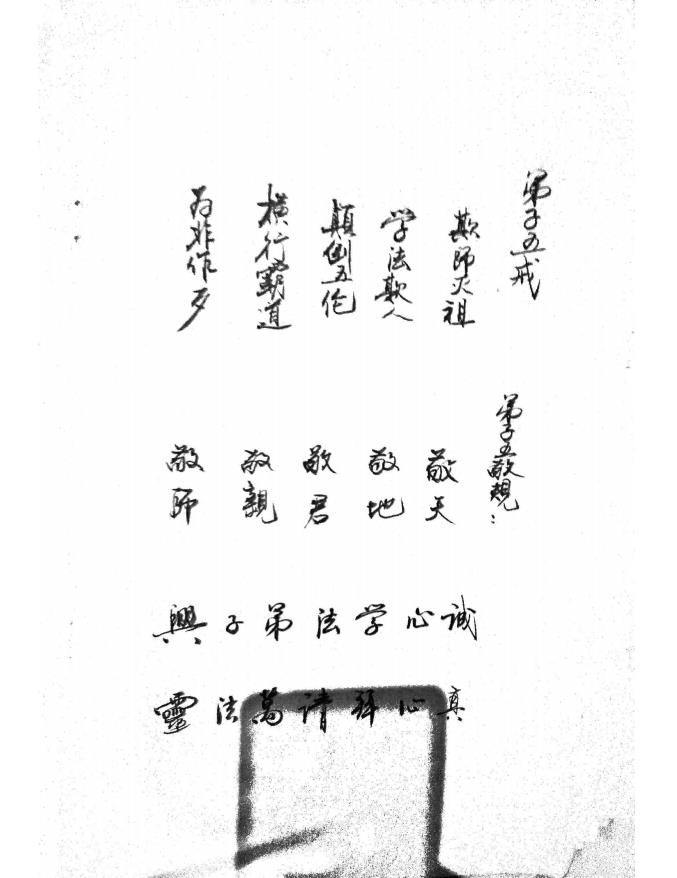 弟子五戒
欺師灭祖
学法欺人
顛倒五伦
横行霸道
为非作歹
弟子五敬規：
敬天
敬地
敬君
敬親
敬師
誠心学法弟子興
真心拜請萬法靈